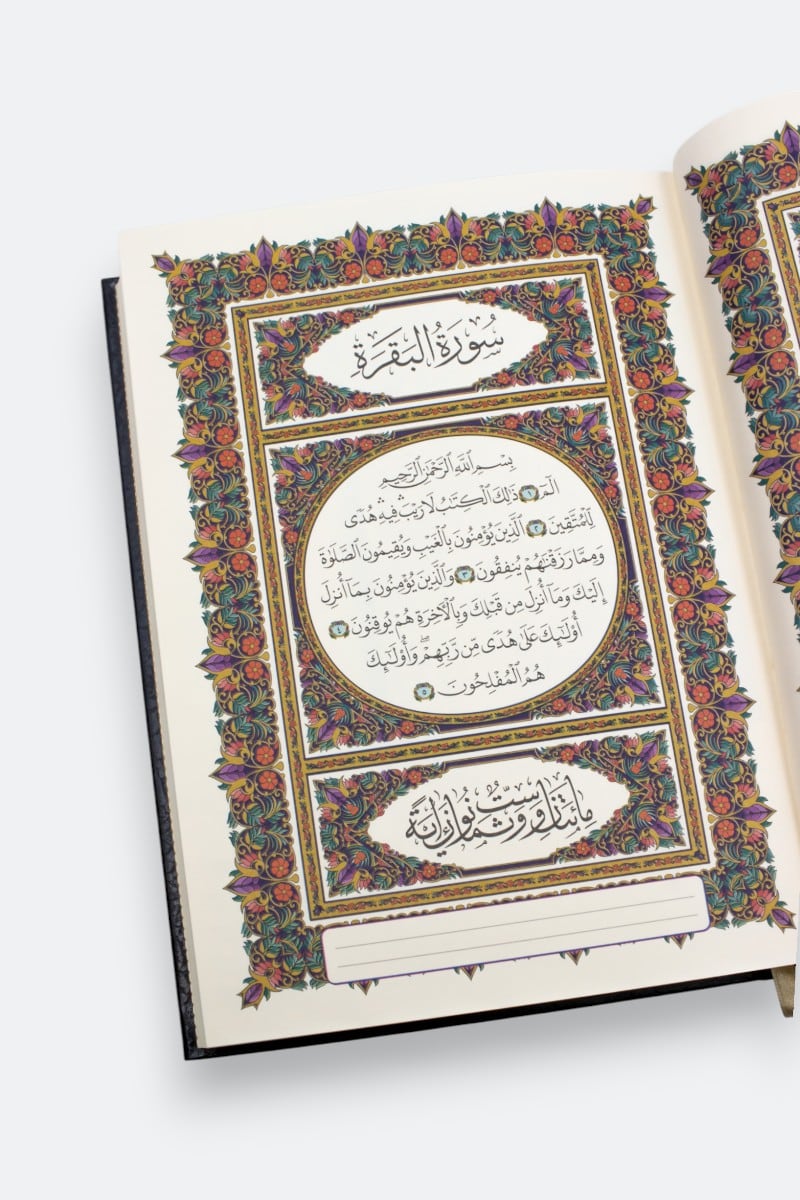 سُورَةُ البَقَرَةِ
بِسْمِ اللَّهِ الرَّحْمَٰنِ الرَّحِيمِ
الٓمٓ ١ ذَٰلِكَ ٱلْكِتَٰبُ لَا رَيْبَ ۛ فِيهِ ۛ هُدًى
لِّلْمُتَّقِينَ ٢ ٱلَّذِينَ يُؤْمِنُونَ بِٱلْغَيْبِ وَيُقِيمُونَ ٱلصَّلَوٰةَ
وَمِمَّا رَزَقْنَٰهُمْ يُنفِقُونَ ٣ وَٱلَّذِينَ يُؤْمِنُونَ بِمَآ أُنزِلَ
إِلَيْكَ وَمَآ أُنزِلَ مِن قَبْلِكَ وَبِٱلْءَاخِرَةِ هُمْ يُوقِنُونَ ٤
أُو۟لَٰٓئِكَ عَلَىٰ هُدًى مِّن رَّبِّهِمْ ۖ وَأُو۟لَٰٓئِكَ
هُمُ ٱلْمُفْلِحُونَ ٥
مِائَتَانِ وَسِتٌّ وَثَمَانُونَ آيَةً